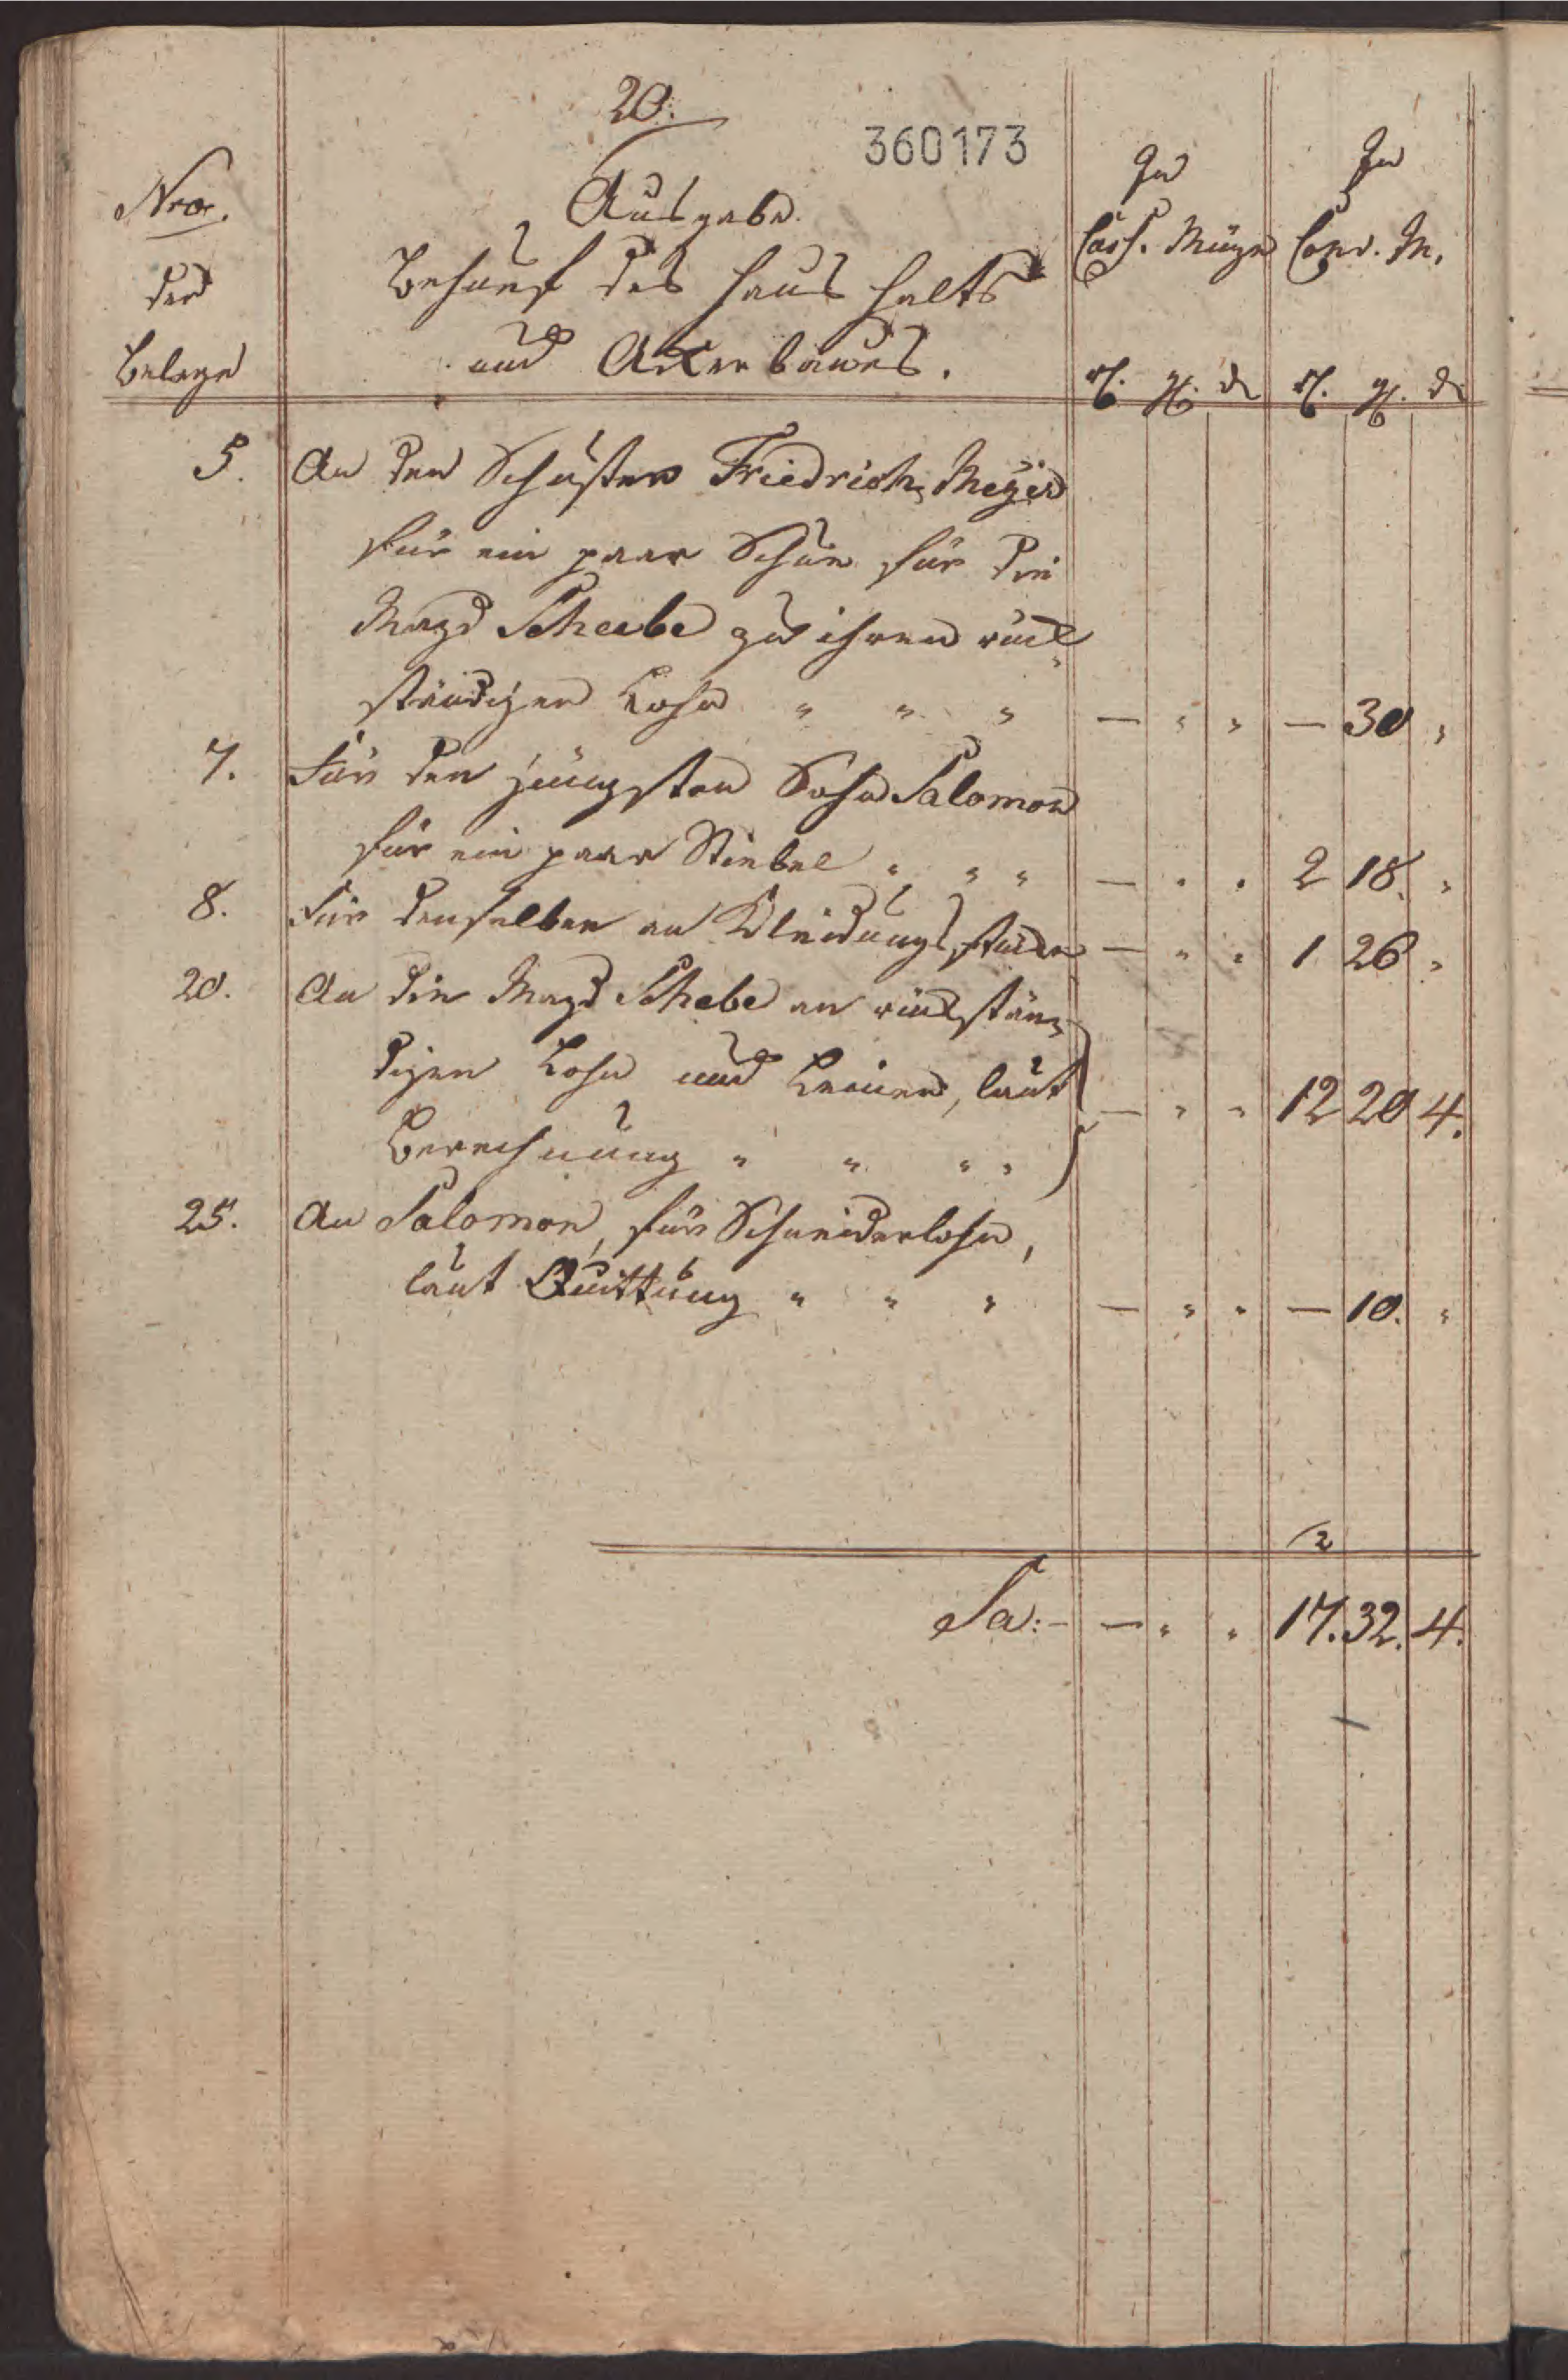 20.
360173
Nro.
der
Belege
Ausgabe.
Behuef des Haus halts
und Ackerbaues.
In
Cass. Münze
In
Conv. M.
rt. gg. d rt. gg. d
5. An den Schuster Friedrich Meyer
für ein paar Schue für die
Magd Scheebe zu ihren rück-
ständigen Lohn " " " — " " — 30 "
7. Für den jüngsten Sohn Salomon
für ein paar Stiebel " " " — " " 2 18. "
8. Für denselben an Kleidungsstücke — " " 1 26 "
20. An die Magd Schebe an rückstän-
digen Lohn und Leinen, laut
Berechnung " " " " — " " 12 20 4.
25. An Salomon, für Schneiderlohn,
laut Quittung " " " — " " — 10. "
2
Sa: — " " 17. 32. 4.